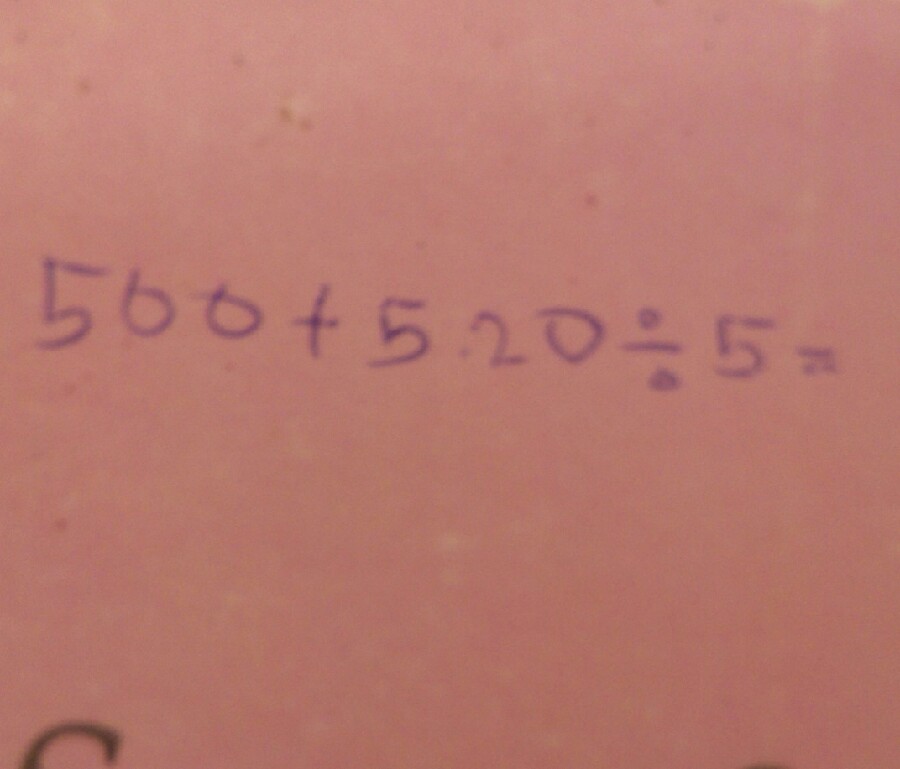 500+5.20÷5=